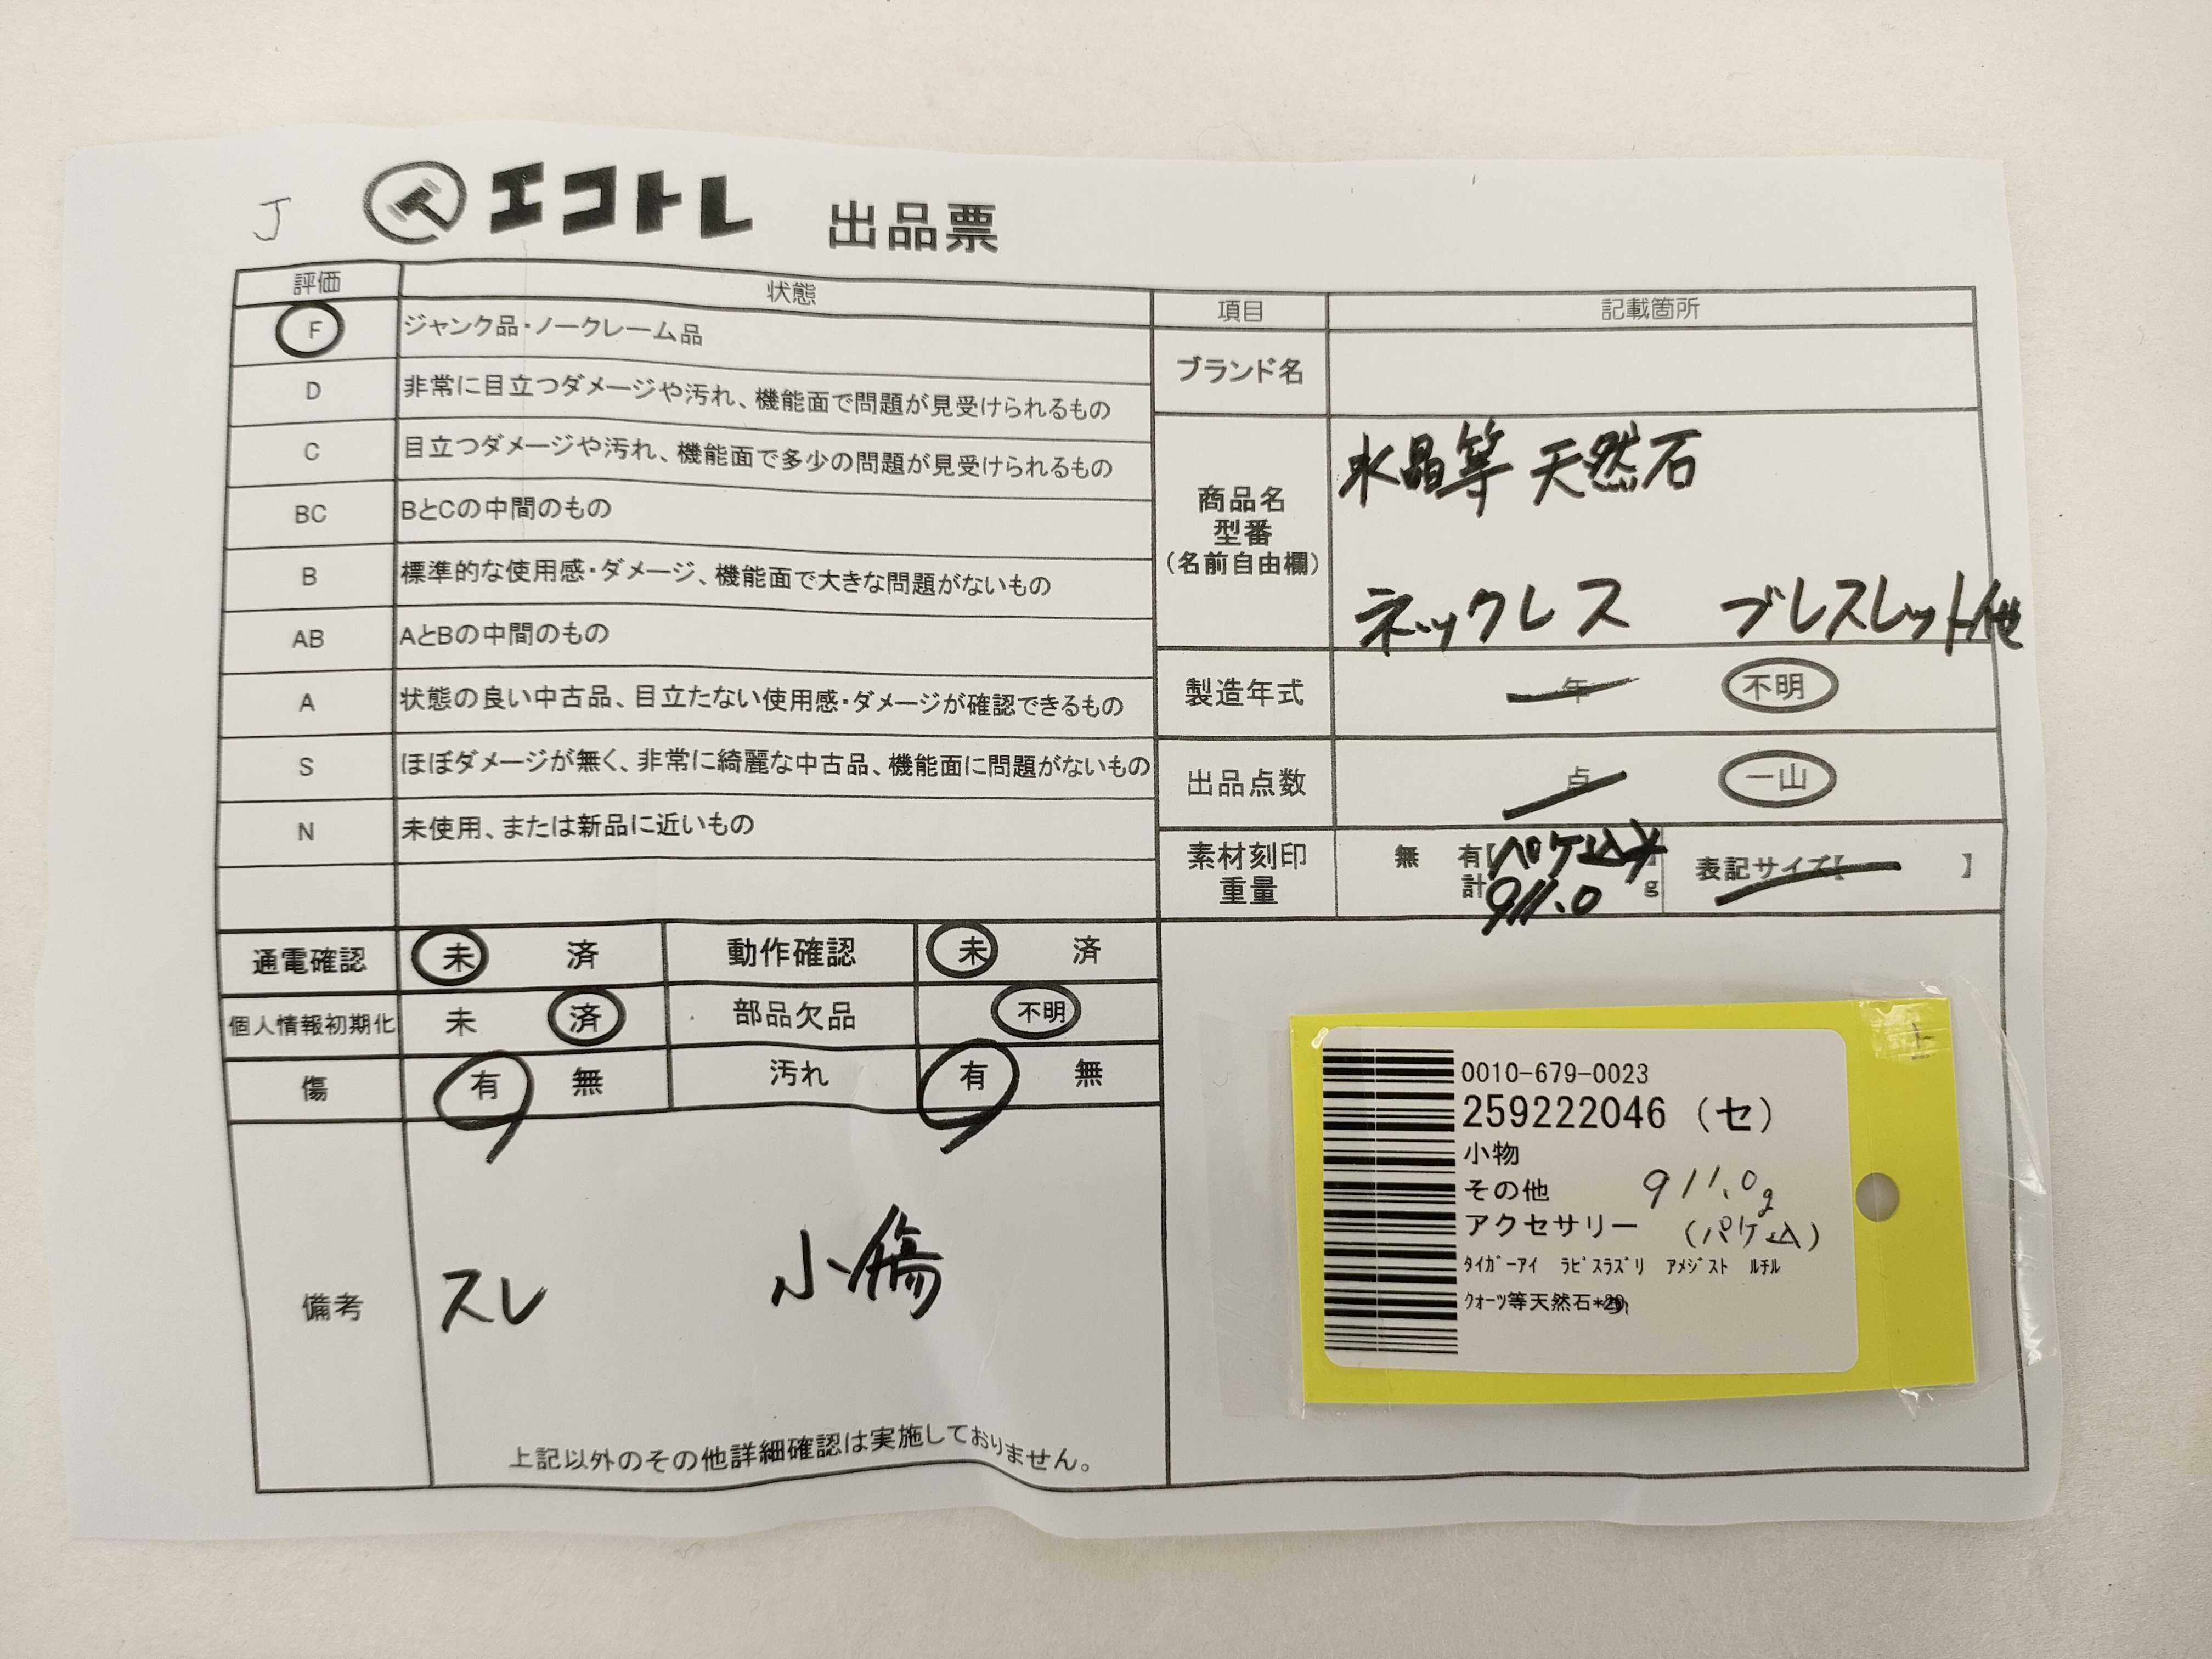 J
エコトレ 出品票
評価 状態
F ジャンク品・ノークレーム品
D 非常に目立つダメージや汚れ、機能面で問題が見受けられるもの
C 目立つダメージや汚れ、機能面で多少の問題が見受けられるもの
BC BとCの中間のもの
B 標準的な使用感・ダメージ、機能面で大きな問題がないもの
AB AとBの中間のもの
A 状態の良い中古品、目立たない使用感・ダメージが確認できるもの
S ほぼダメージが無く、非常に綺麗な中古品、機能面に問題がないもの
N 未使用、または新品に近いもの
項目 記載箇所
ブランド名
商品名
型番
(名前自由欄)
水晶等 天然石
ネックレス ブレスレット他
製造年式 年 不明
出品点数 点 一山
素材刻印
重量
無 有【パケ込み】
計 911.0 g
表記サイズ【 】
通電確認 未 済 動作確認 未 済
個人情報初期化 未 済 部品欠品 不明
傷 有 無 汚れ 有 無
備考
スレ 小傷
上記以外のその他詳細確認は実施しておりません。
0010-679-0023
259222046 (セ)
小物
その他 911.0g
アクセサリー (パケ込)
ﾀｲｶﾞｰｱｲ ﾗﾋﾟｽﾗｽﾞﾘ ｱﾒｼﾞｽﾄ ﾙﾁﾙ
ｸｫｰﾂ等天然石*